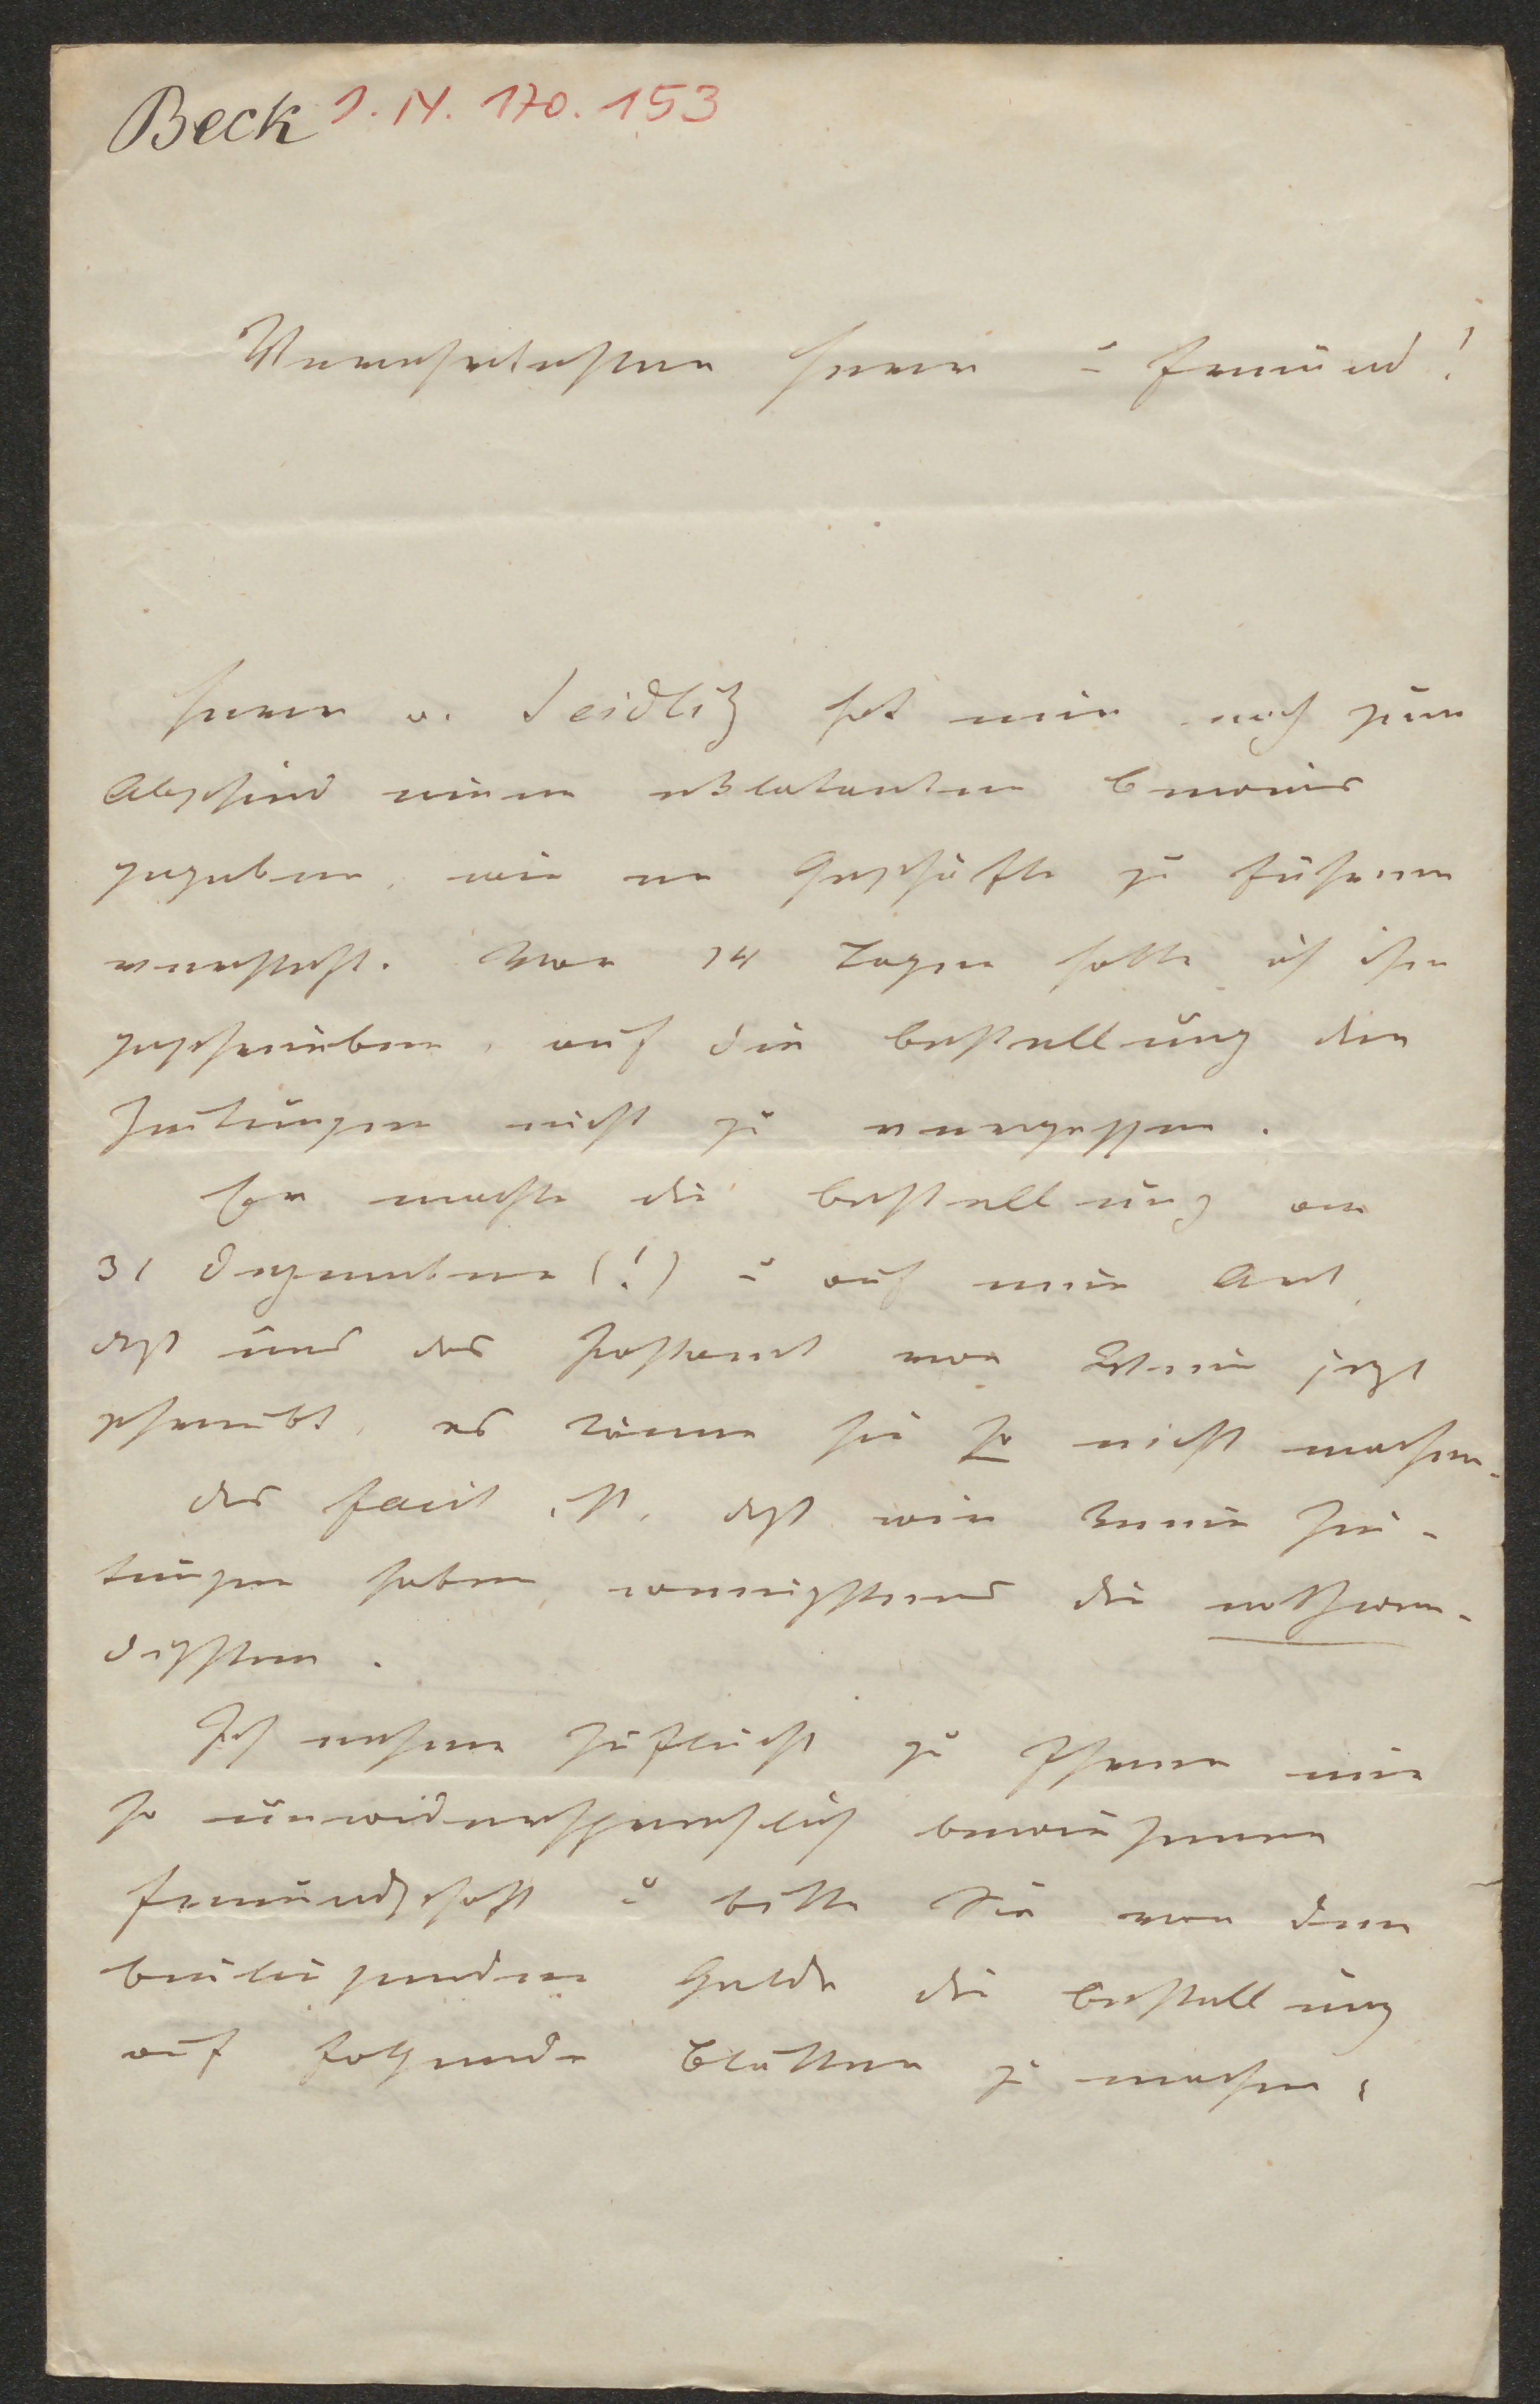 Beck I. N. 170.153
Verehrtester Herr u Freund!
Herr v. Seidlitz hat mir noch zum
Abschied einen eklatanten Beweis
gegeben, wie er Geschäfte zu führen
versteht. Vor 14 Tagen hatte ich ihm
geschrieben, auf die Bestellung der
Zeitungen nicht zu vergessen.
Er machte die Bestellung am
31 Dezember (!) u auf eine Art,
daß uns das Postamt von jetzt
schreibt, es könne sie so nicht machen.
Das Facit ist, daß wir keine Zei-
tungen haben, wenigstens die nothwen-
digsten.
Ich nehme Zuflucht zu Ihrer mir
so unwidersprechlich bewiesenen
Freundschaft u bitte Sie von dem
beiliegenden Gelde die Bestellung
auf folgende Blätter zu machen: